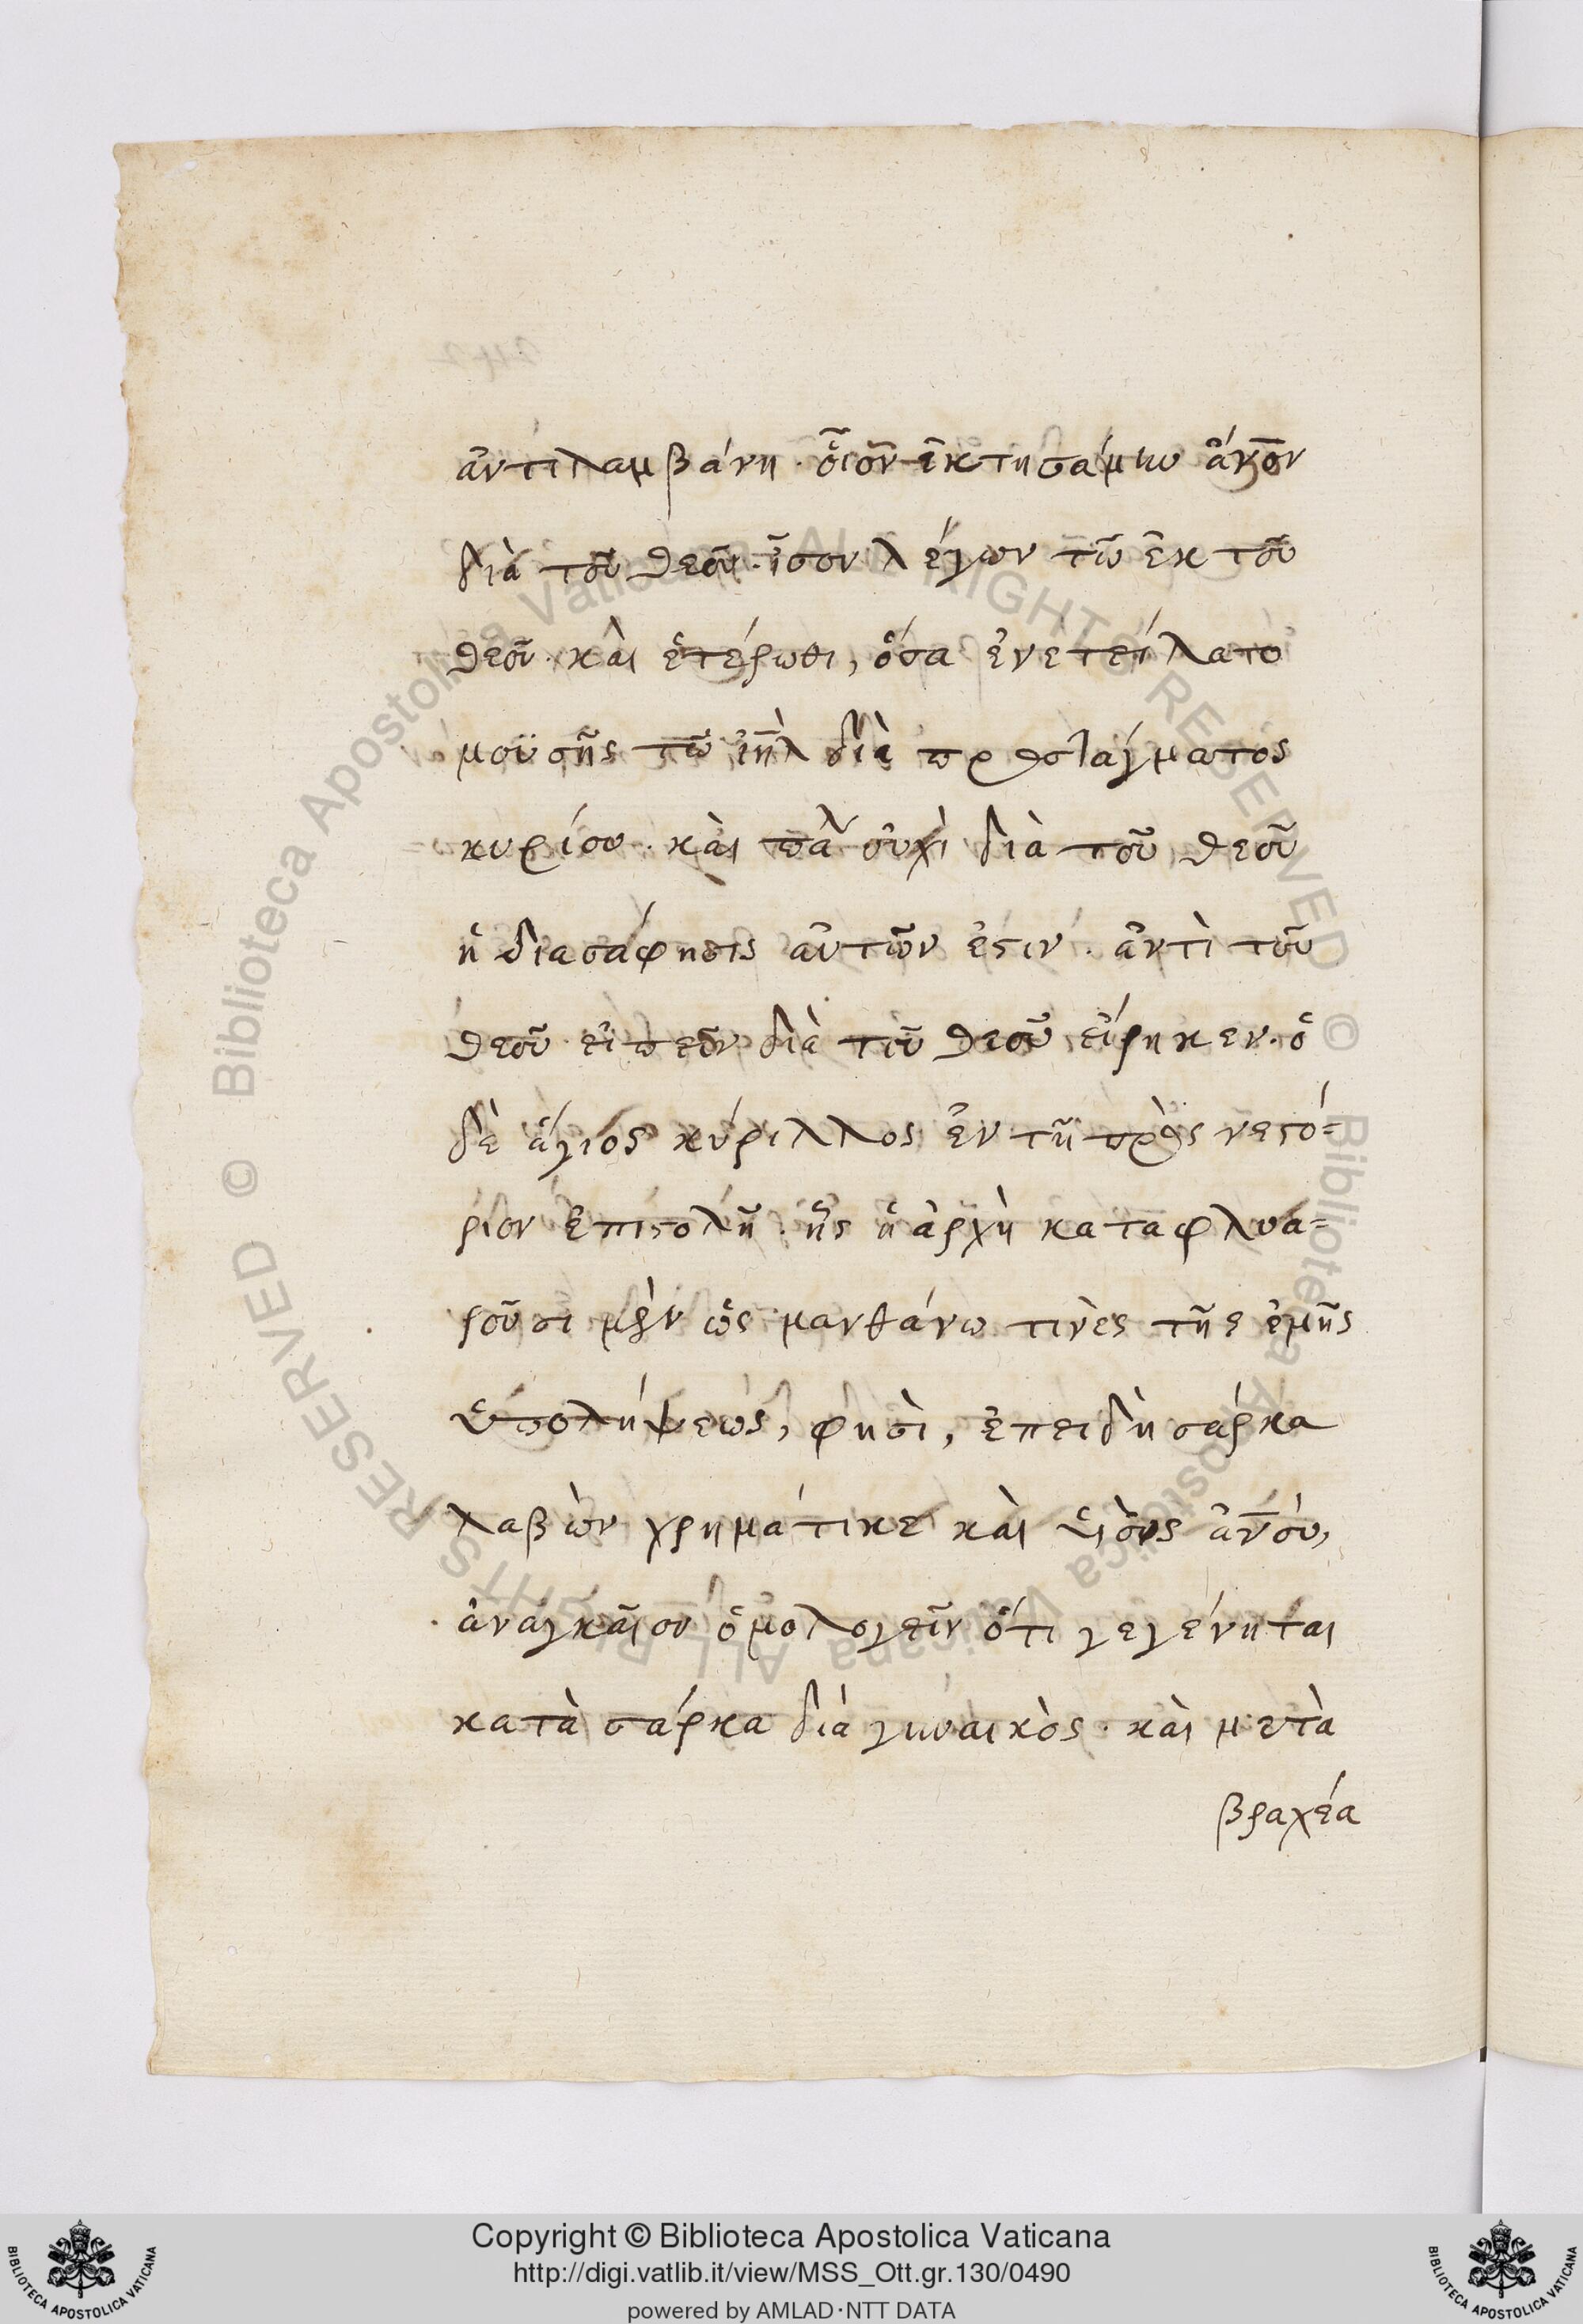 ἀντιλαμβάνη. οἷον ἐκτησάμην ἄν̅ο̅ν
διὰ τοῦ θεοῦ. ἴσον λέγων τῶ ἐκ τοῦ
θεοῦ. καὶ ἑτέρωθι, ὅσα ἐνετείλατο
μοϋσῆς τῶ ἰη̅λ διὰ προστάγματος
κυρίου. καὶ πάλ οὐχὶ διὰ τοῦ θεοῦ
ἡ διασάφησις αὐτῶν ἐστιν. ἀντὶ τοῦ
θεοῦ εἰπεῖν διὰ τοῦ θεοῦ εἴρηκεν. ὁ
δὲ ἅγιος κύριλλος ἐν τῆ πρὸς νεστό=
ριον ἐπιστολῆ. ἧς ἡ ἀρχὴ καταφλυα=
ροῦσι μὲν ὡς μανθάνω τινὲς τῆς ἐμῆς
ὑπολήψεως, φησὶ, ἐπειδὴ σάρκα
λαβὼν χρημάτικε καὶ ἀν̅ου,
ἀναγκαῖον ὁμολογεῖν ὅτι γεγένηται
κατὰ σάρκα διὰ γυναικὸς. καὶ μετὰ
βραχέα
Copyright © Biblioteca Apostolica Vaticana
http://digi.vatlib.it/view/MSS_Ott.gr.130/0490
powered by AMLAD·NTT DATA
© Biblioteca Apostolica Vaticana ALL RIGHTS RESERVED © Biblioteca Apostolica Vaticana ALL RIGHTS RESERVED
BIBLIOTECA APOSTOLICA VATICANA
BIBLIOTECA APOSTOLICA VATICANA